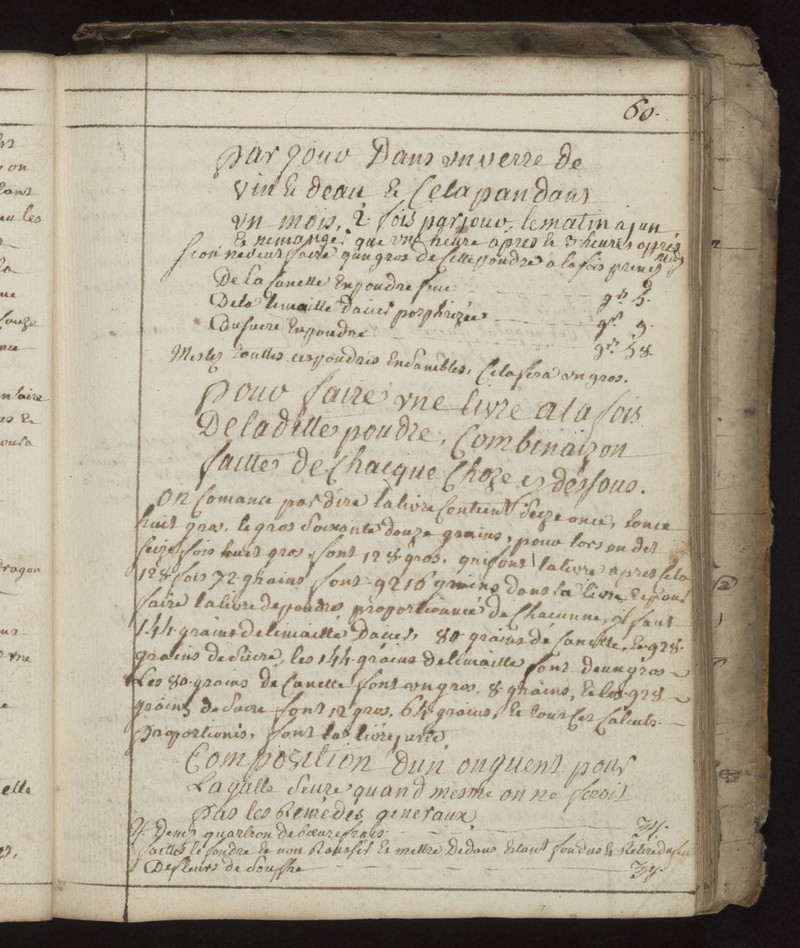 60.
par jour Dans un verre de
vin & deau & Cela pandant
un mois, 2 fois par jour, le matin a jun
& nemanger que une heure apres & 3 heures apres midy
sion neveut faire qun gros de cette poudre a la fois prenez
De la Canelle En poudre fine gns 5.
Dela limaille Dacier porphirizée gns 9.
Du sucre En poudre gns 58.
Meslez Touttes ces poudres Ensambles, Cela fera un gros.
pour faire une livre a la fois
De laditte poudre, Combinaizon
faitte de Chacque Choze cy dessous.
on Comance par dire la livre Contient Seize once, lonce
huit gros, le gros Soixante douze grains, pour lors on dit
seize fois huit gros font 128 gros. qui font la livre apres Cela
128 fois 72 grains font 9216 grains dans la livre & pour
faire la livre de poudre proportionnée de Chacunne, il faut
144 grains de limaille Dacier, 80 grains de Canelle, & 928
grains de Sucre, les 144 grains de limaille font deux gros
Les 80 grains de Canelle font un gros, 8 grains, & les 928
grains de Sucre font 12 gros, 64 grains, & tous ces Calculs
proportionés, font la livre juste
Composition dun onguent pour
La galle Seure quand mesme on ne seroit
pas les Remedes generaux
Demy quartron de beure frais
faittes le fondre & non Roussir & mettre Dedans Estant fondus & Retiré du feu
De fleurs de Souffre